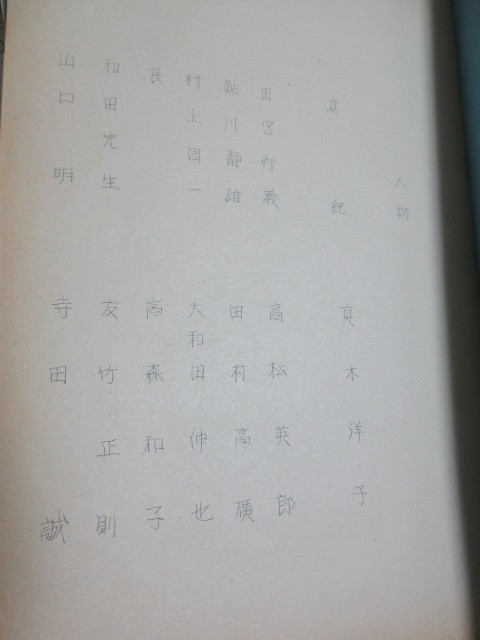 人物
真紀 真木洋子
田宮行義 高松英郎
鮎川靜雄 田村高廣
村上周一 大和田伸也
良 高森和子
和田先生 友竹正則
山口明 寺田誠